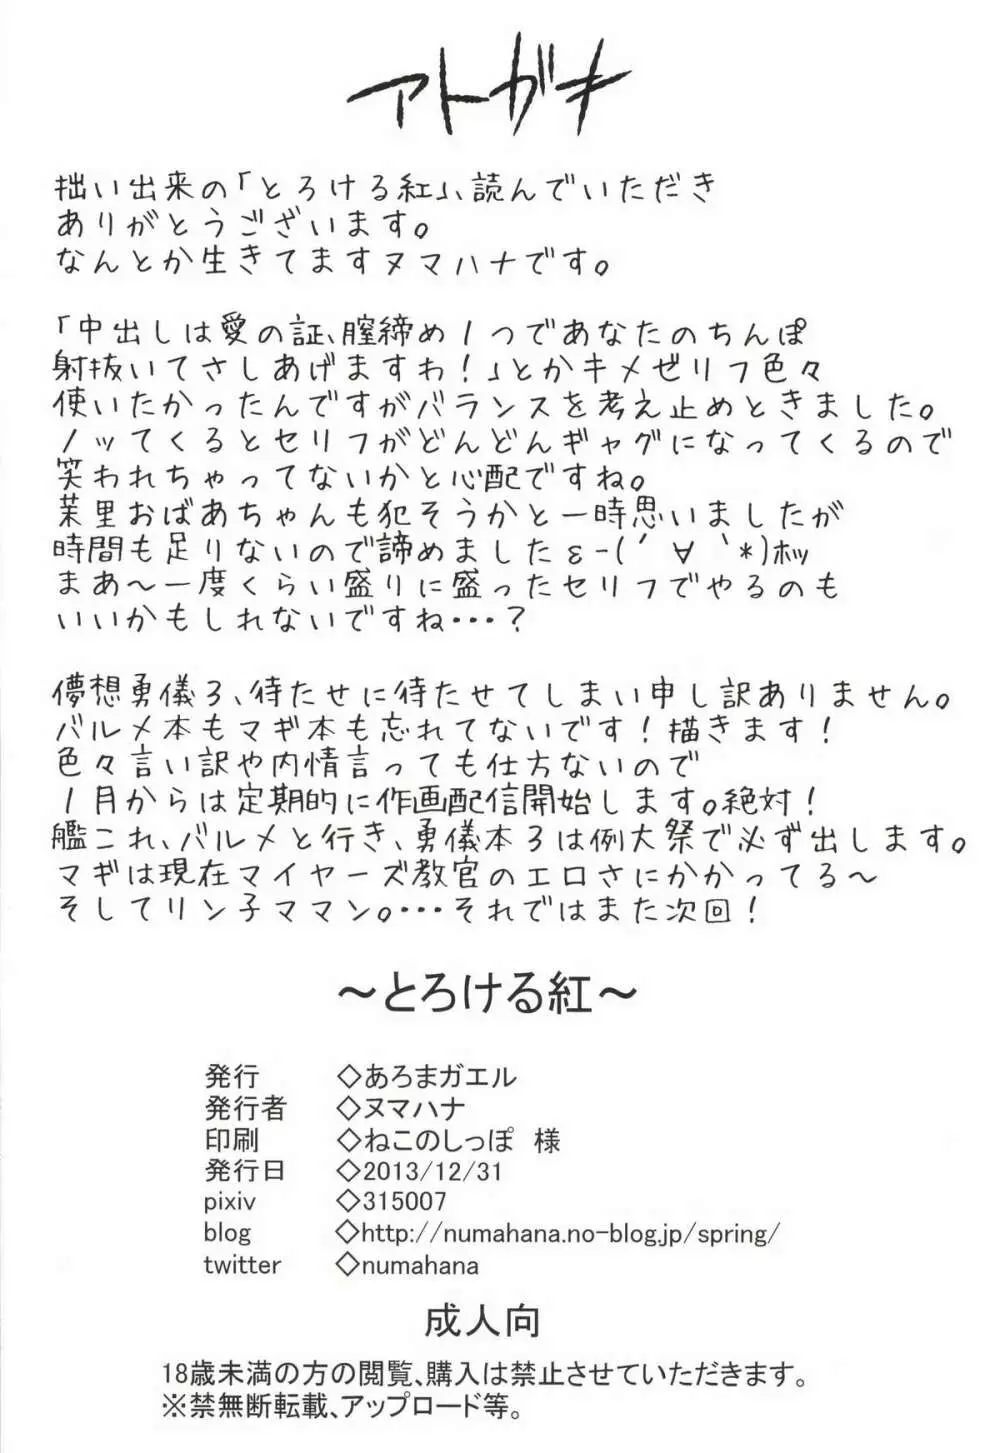 アトガキ
拙い出来の「とろける紅」、読んでいただき
ありがとうございます。
なんとか生きてますヌマハナです。
「中出しは愛の証、膣締め1つであなたのちんぽ
射抜いてさしあげますわ!」とかキメゼリフ色々
使いたかったんですがバランスを考え止めときました。
ノッてくるとセリフがどんどんギャグになってくるので
笑われちゃってないかと心配ですね。
茉里おばあちゃんも犯そうかと一時思いましたが
時間も足りないので諦めましたε-(´∀`*)ホッ
まあ~一度くらい盛りに盛ったセリフでやるのも
いいかもしれないですね・・・?
儚想勇儀3、待たせに待たせてしまい申し訳ありません。
バルメ本もマギ本も忘れてないです!描きます!
色々言い訳や内情言っても仕方ないので
1月からは定期的に作画配信開始します。絶対!
艦これ、バルメと行き、勇儀本3は例大祭で必ず出します。
マギは現在マイヤーズ教官のエロさにかかってる~
そしてリン子ママン。・・・それではまた次回!
~とろける紅~
発行 ◇あろまガエル
発行者 ◇ヌマハナ
印刷 ◇ねこのしっぽ 様
発行日 ◇2013/12/31
pixiv ◇315007
blog ◇http://numahana.no-blog.jp/spring/
twitter ◇numahana
成人向
18歳未満の方の閲覧、購入は禁止させていただきます。
※禁無断転載、アップロード等。